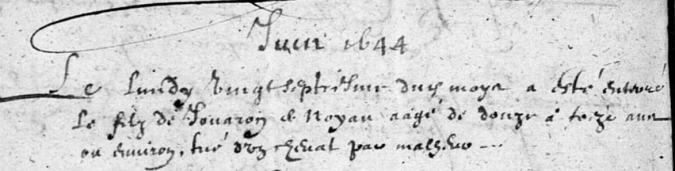 Juin 1644
Le lundy vingtseptiesme dud moys a esté enterré
le filz de Jouaron de Noyau aagé de douze à treze ans
ou environ, tué d'un cheval par malheur